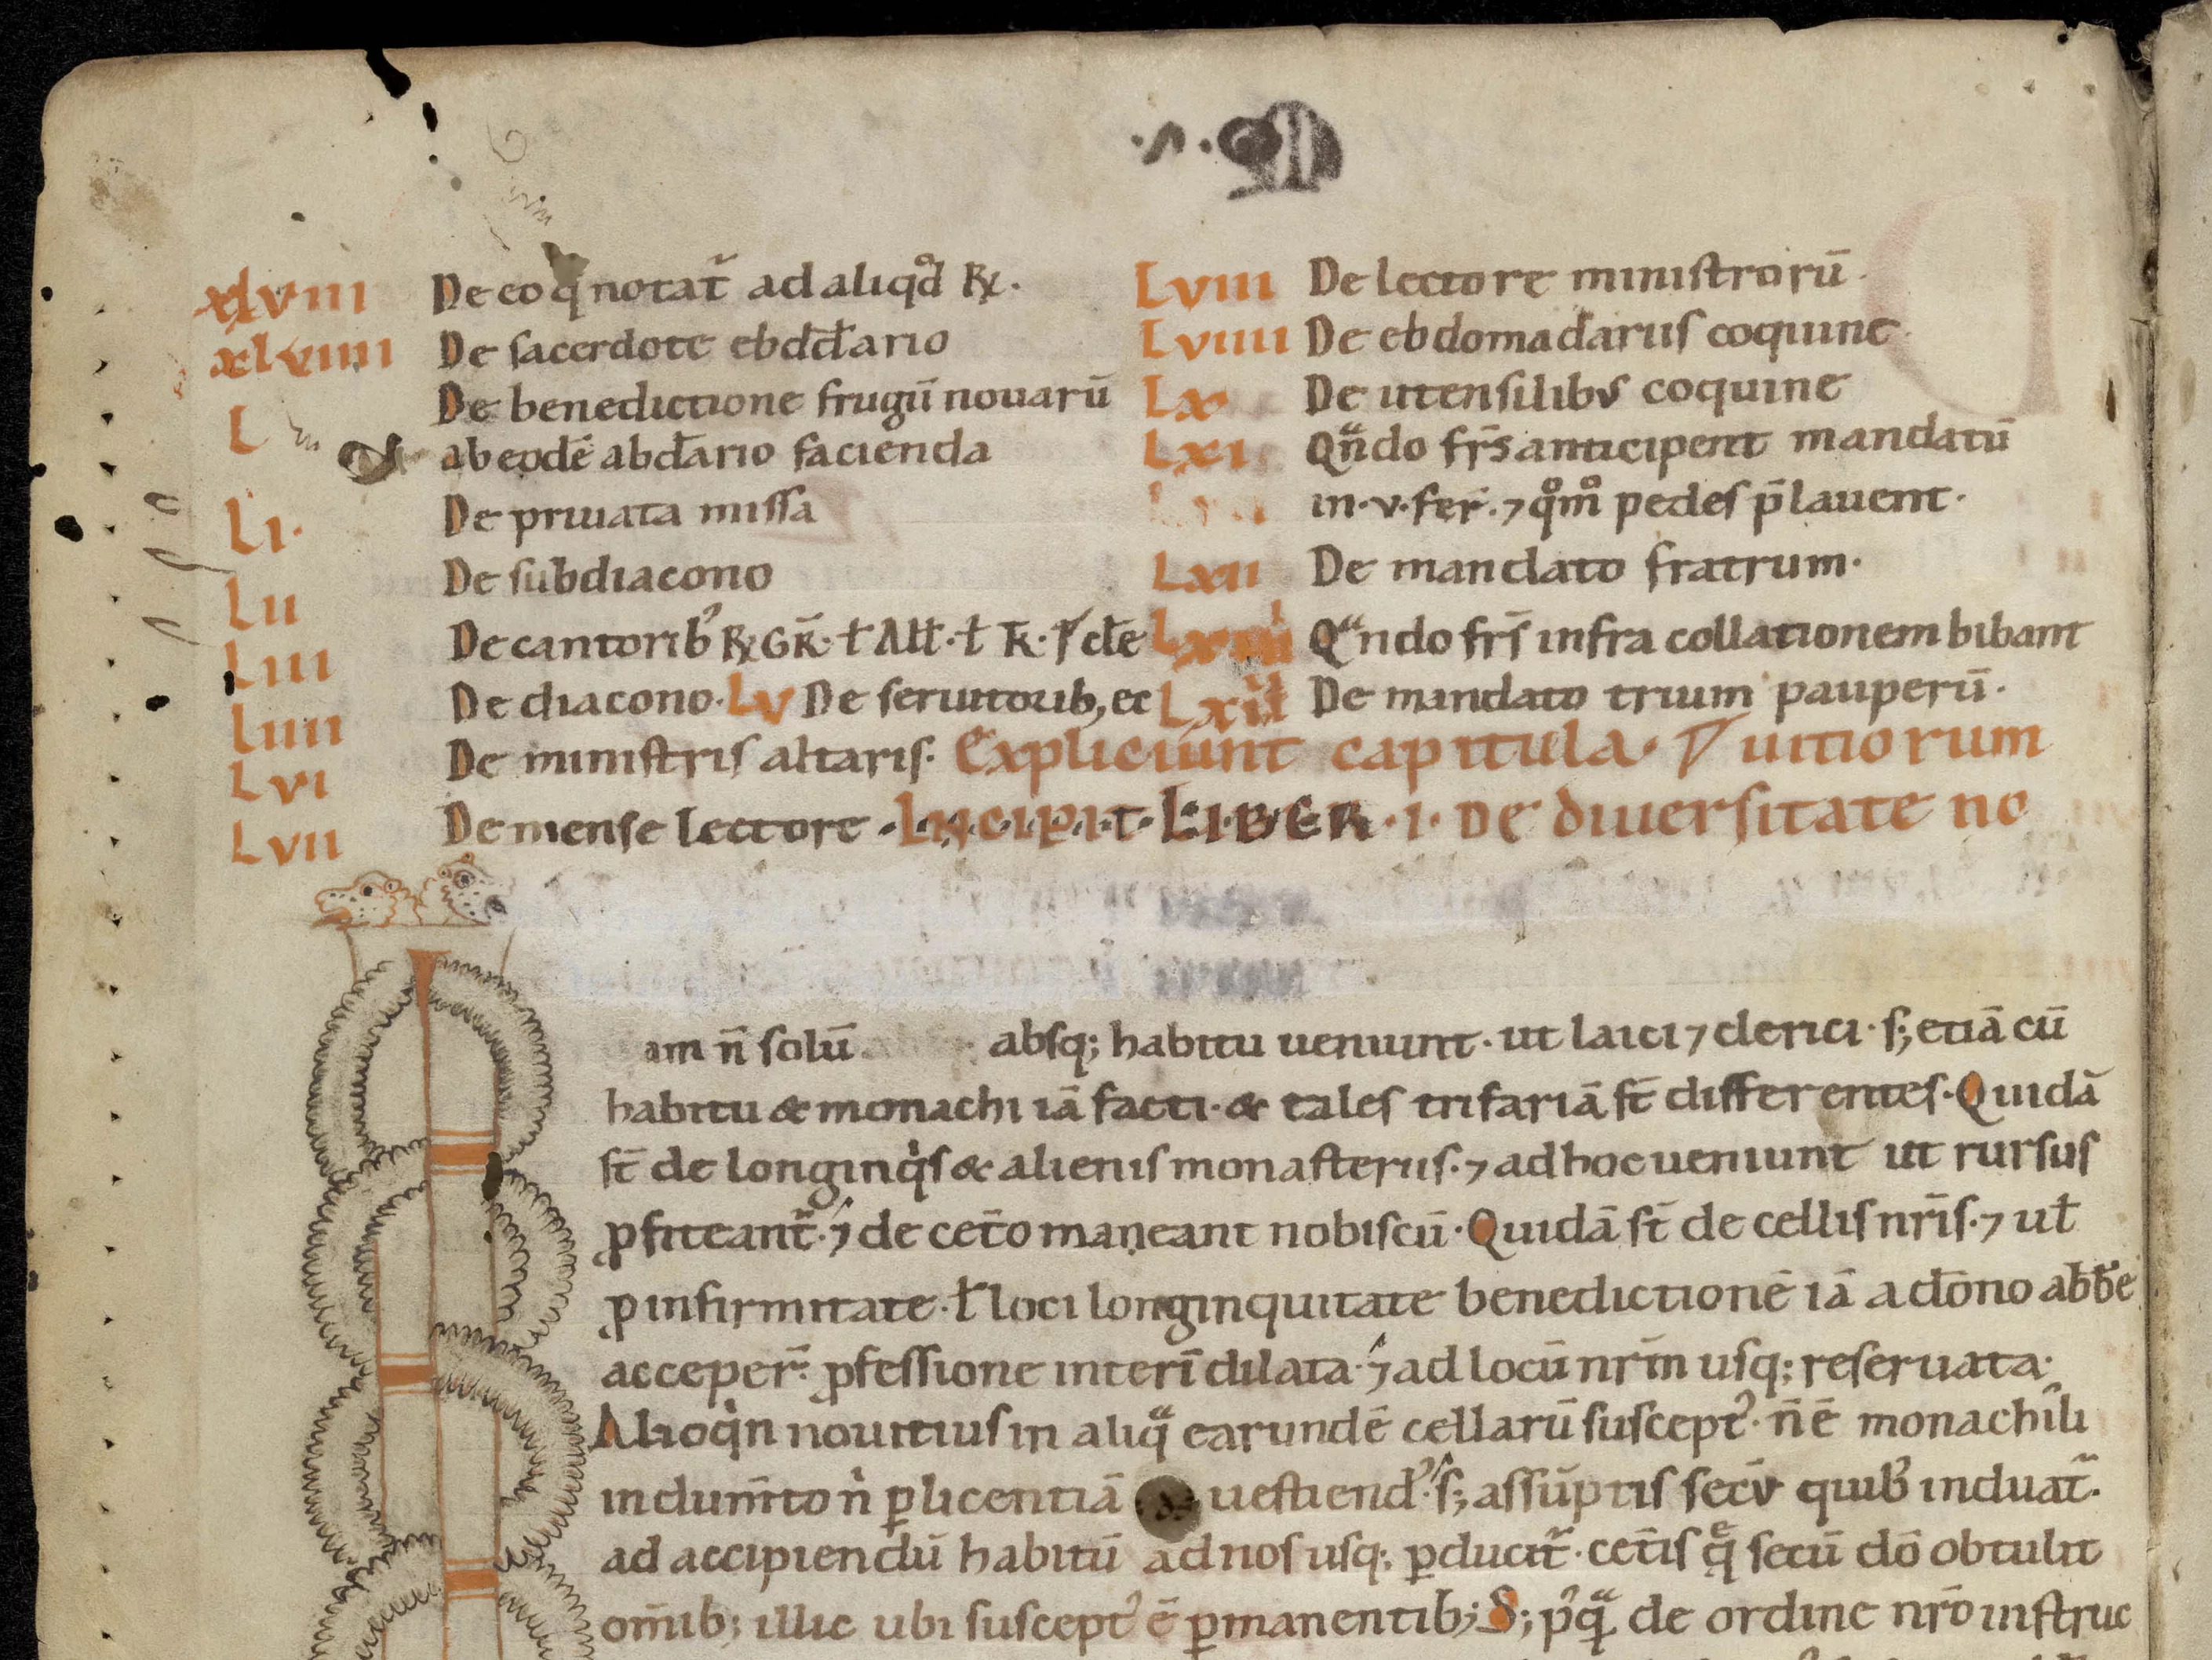 xlviii De eo q̄ notat᷑ ad aliqd̊ ℟.
xlviiii De sacerdote ebd̄d̄ario
L De benedictione frugū nouarū
ab eodē abd̄ario facienda
Li. De priuata missa
Lii De subdiacono
Liii De cantorib᾽ ℟ GR̄. ł Aɫɫ. ł k̄.
Liiii De diacono. Lv De seruitorib, ec
Lvi De ministris altaris.
Lvii De mense lectore
Lviii De lectore ministrorū.
Lviiii De ebdomadariis coquine
Lx De utensilibus coquine
Lxi Qn̄do fr̄s anticipent mandatū
in .v. fer̄. ⁊ qͦmͦ pedes p̄ lauent.
Lxii De mandato fratrum.
Qᵃndo fr̄s infra collationem bibant
De mandato trium pauperū.
Expliciunt capitula. uitiorum
INCIPIT LIBER .I. De diuersitate no
am n̄ solū absq; habitu ueniunt. ut laici ⁊ clerici. s; etiā cū
habitu & monachi iā facti. & tales trifariā st̄ differentes. Quidā
st̄ de longinqͥs & alienis monasteriis. ⁊ ad hoc ueniunt ut rursus
ꝓfiteant᷑. ⁊ de cet̄o maneant nobiscū. Quidā st̄ de cellis nr̄is. ⁊ uł
ꝓ infirmitate. ł loci longinquitate benedictionē iā a dōno abb̄e
acceper̄. ꝓfessione interī dilata. ⁊ ad locū nr̄m usq; reseruata.
Alioqͥn nouitius in aliqᵃ earundē cellarū suscept᾽. n̄ ē monachili
indum̄to n̄ ꝑ licentiā uestiend᾽. s; assūptis secū quib᾽ induat᷑.
ad accipiendū habitū ad nos usq; ꝑducit᷑. cet̄is q̄ secū dō obtulit
om̄ib; illic ubi suscept᾽ ē ꝑmanentib; S; p᾽qᵃ de ordine nr̄o instruc